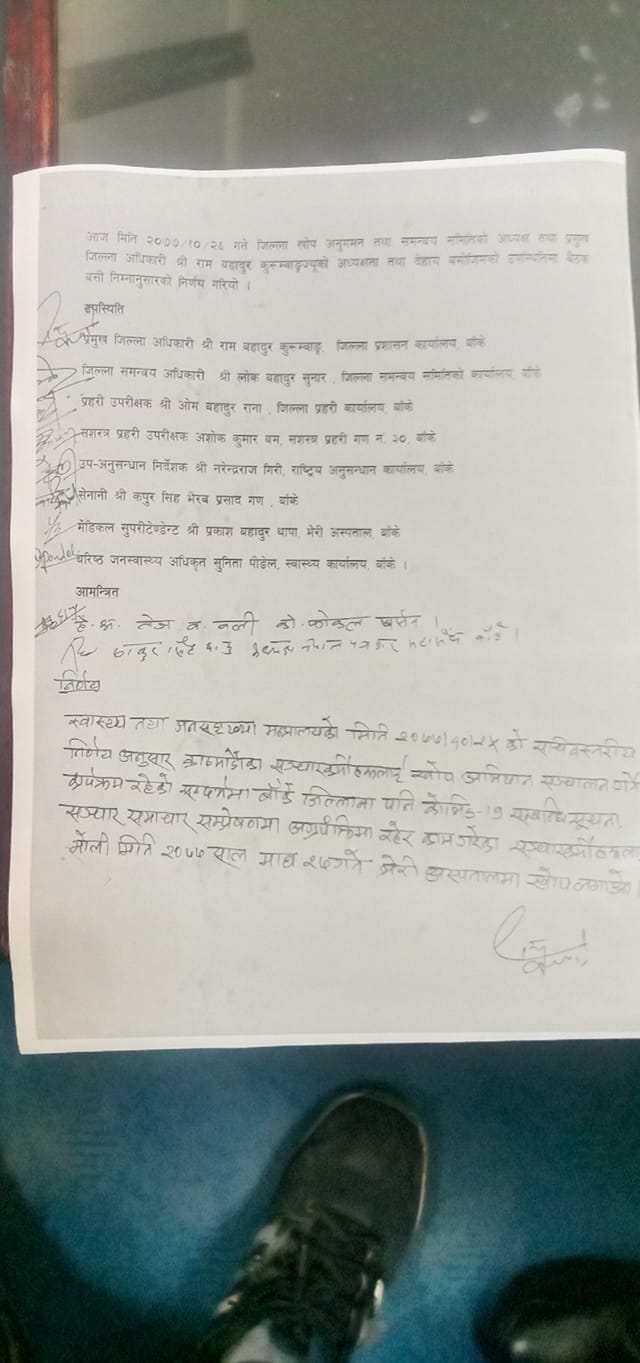 आज मिति २०७७/१०/२६ गते जिल्ला खोप अनुगमन तथा समन्वय समितिको अध्यक्ष तथा प्रमुख
जिल्ला अधिकारी श्री राम बहादुर कुरुम्वाङ्ज्यूको अध्यक्षता तथा देहाय बमोजिमको उपस्थितिमा बैठक
बसी निम्नानुसारको निर्णय गरियो ।
उपस्थिति
प्रमुख जिल्ला अधिकारी श्री राम बहादुर कुरुम्वाङ्, जिल्ला प्रशासन कार्यालय, बाँके
जिल्ला समन्वय अधिकारी श्री लोक बहादुर सुनार , जिल्ला समन्वय समितिको कार्यालय, बाँके
प्रहरी उपरीक्षक श्री ओम बहादुर राना , जिल्ला प्रहरी कार्यालय, बाँके
सशस्त्र प्रहरी उपरीक्षक अशोक कुमार बम, सशस्त्र प्रहरी गण न. ३०, बाँके
उप-अनुसन्धान निर्देशक श्री नरेन्द्रराज गिरी, राष्ट्रिय अनुसन्धान कार्यालय, बाँके
सेनानी श्री कपुर सिंह भैरव प्रसाद गण , बाँके
मेडिकल सुपरीटेण्डेन्ट श्री प्रकाश बहादुर थापा, भेरी अस्पताल, बाँके
वरिष्ठ जनस्वास्थ्य अधिकृत सुनिता पौडेल, स्वास्थ्य कार्यालय, बाँके ।
आमन्त्रित
है. अ. तेज ब. वली को. फोकल पर्सन ।
निर्णय
स्वास्थ्य तथा जनसङ्ख्या मन्त्रालयको मिति २०७७।१०।२५ को सचिवस्तरीय
निर्णय अनुसार काठमाडौंका सञ्चारकर्मीहरूलाई खोप अभियान सञ्चालन गर्ने
कार्यक्रम रहेको सन्दर्भमा बाँके जिल्लामा पनि कोभिड-१९ सम्बन्धि सूचना,
सञ्चार, समाचार सम्प्रेषणमा अग्रपंक्तिमा रहेर काम गरेका सञ्चारकर्मीहरूलाई
भोली मिति २०७७ साल माघ २७ गते भेरी अस्पतालमा खोप लगाउने ।